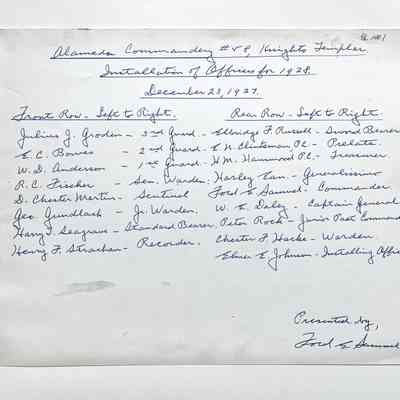 Alameda Commandery #48, Knights Templar
Installation of Officers for 1928.
December 23, 1927.
Front Row - Left to Right. Rear Row - Left to Right
Julius J. Groden - 3rd Guard - Elbridge F. Russell - Sword Bearer
E. C. Bowes - 2nd Guard. E. H. Clinteman P.C. - Prelate.
W. D. Anderson - 1st Guard - H. M. Hammond P.C. - Treasurer.
R. C. Fischer - Sen. Warden: Harley Ean - Generalissimo
D. Chester Martin - Sentinel Ford E. Samuel - Commander
Geo. Gundlach - Jr. Warden. W. E. Daley - Captain General
Harry F. Seagrave - Standard Bearer. Peter Rock - Junior Past Command
Henry F. Strachan - Recorder. Chester F. Hacke - Warden
Elmer E. Johnson - Installing Offic
Presented by,
Ford E Samuel